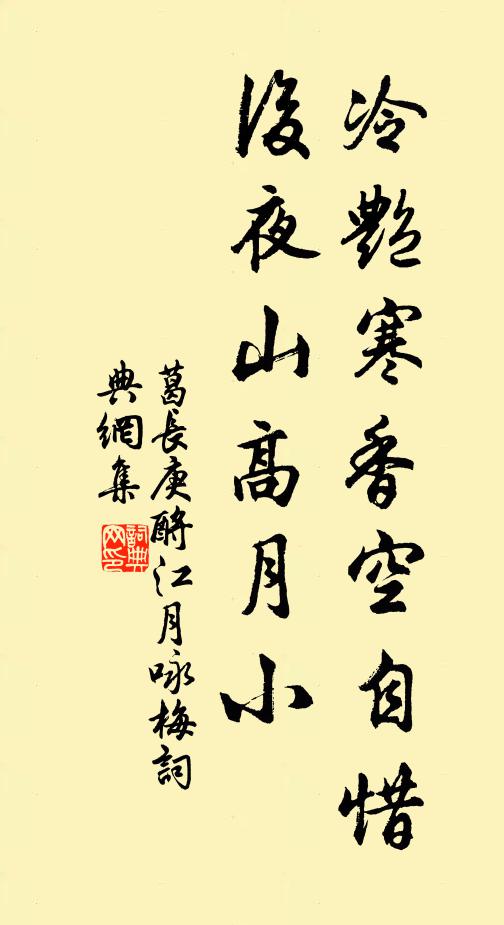 冷艷寒香空自惜
後夜山高月小
葛長庚酹江月咏梅詞
典網集
詞典网印